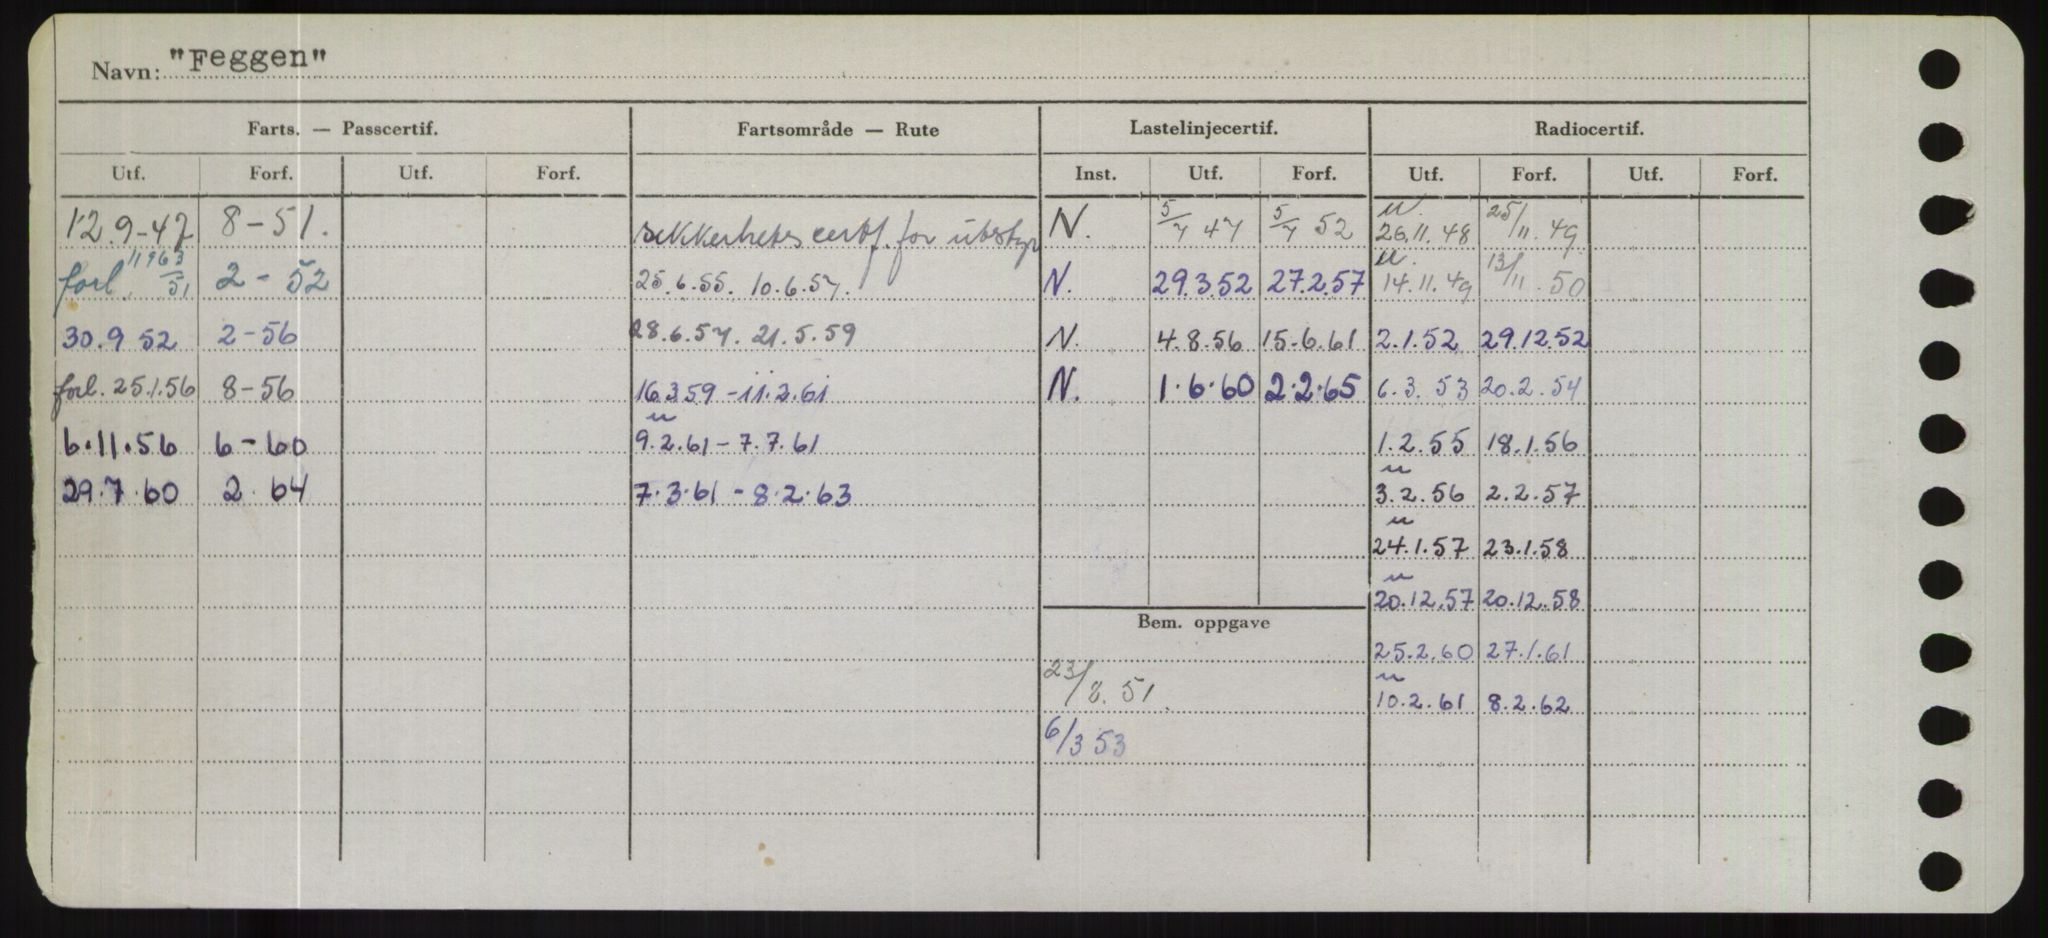 Navn: "Feggen"
Farts. — Passcertif. Fartsområde — Rute Lastelinjecertif. Radiocertif.
Utf. Forf. Utf. Forf. Inst. Utf. Forf. Utf. Forf. Utf. Forf.
12.9-47 8-51. sikkerhetscertf. for utstyr N. 5/7 47 5/7 52 u. 26.11.48 25/11.49
forl. 2-52 25.6.55. 10.6.57. N. 29.3.52 27.2.57 u. 14.11.49 13/11.50
30.9 52 2-56 28.6.57. 21.5.59 N. 4.8.56 15.6.61 2.1.52 29.12.52
forl. 25.1.56 8-56 16.3.59 - 11.2.61 N. 1.6.60 2.2.65 6.3.53 20.2.54
6.11.56 6-60 u 9.2.61 - 7.7.61 1.2.55 18.1.56
29.7.60 2.64 7.3.61 - 8.2.63 u 3.2.56 2.2.57
u 24.1.57 23.1.58
u 20.12.57 20.12.58
Bem. oppgave
25.2.60 27.1.61
23/8.51. u 10.2.61 8.2.62
6/3 53